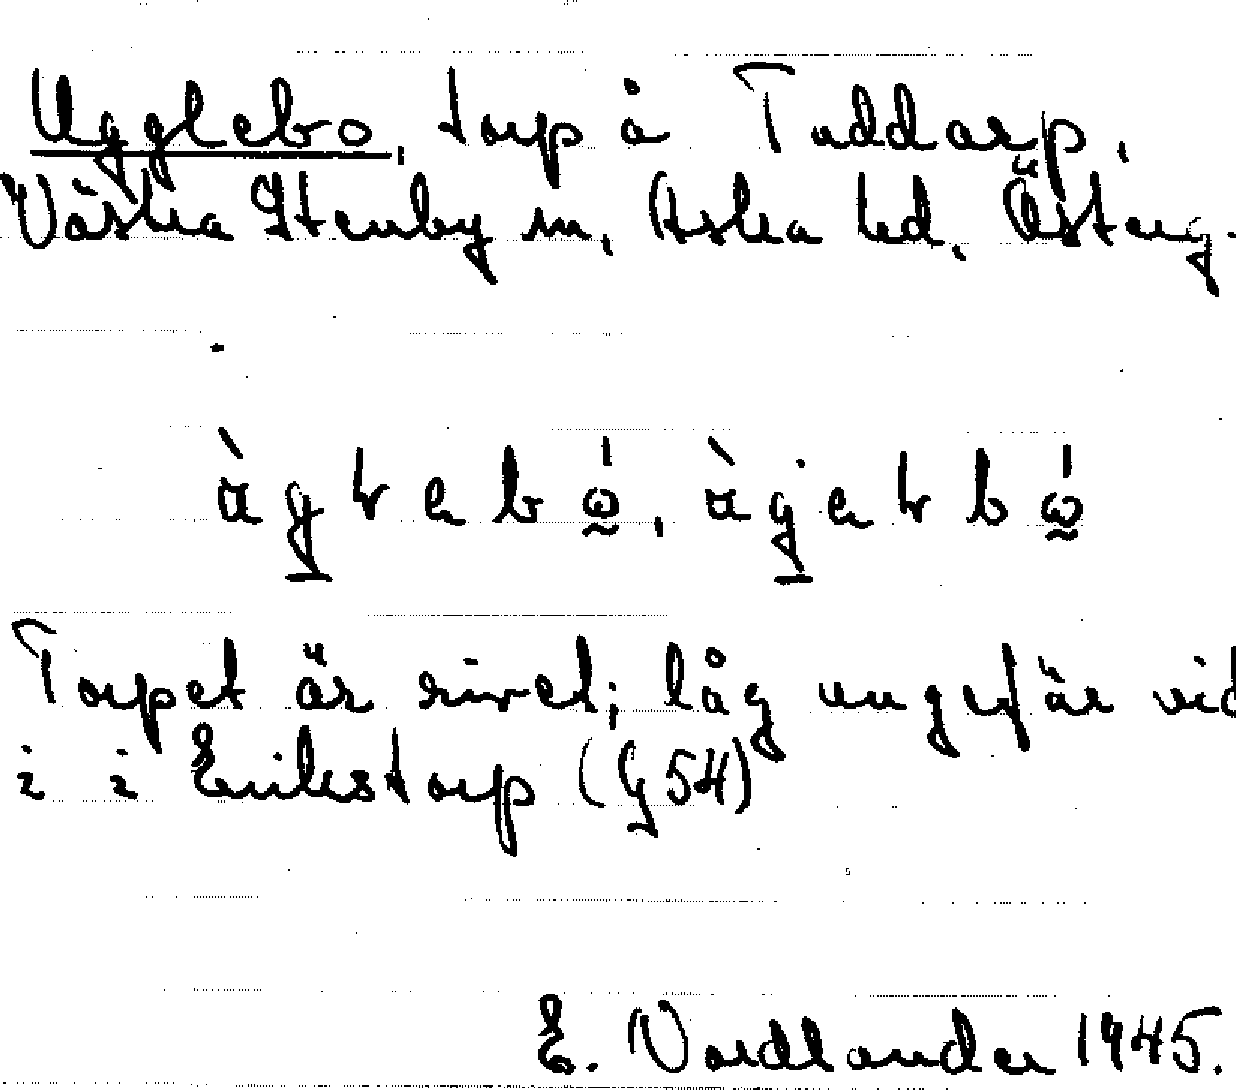 Ugglebo, torp å Taddarp,
Västra Stenby sn, Aska hd, Österg.
Torpet är rivet; låg ungefär vid
i i Erikstorp (G 54)
E. Nordlander 1945.